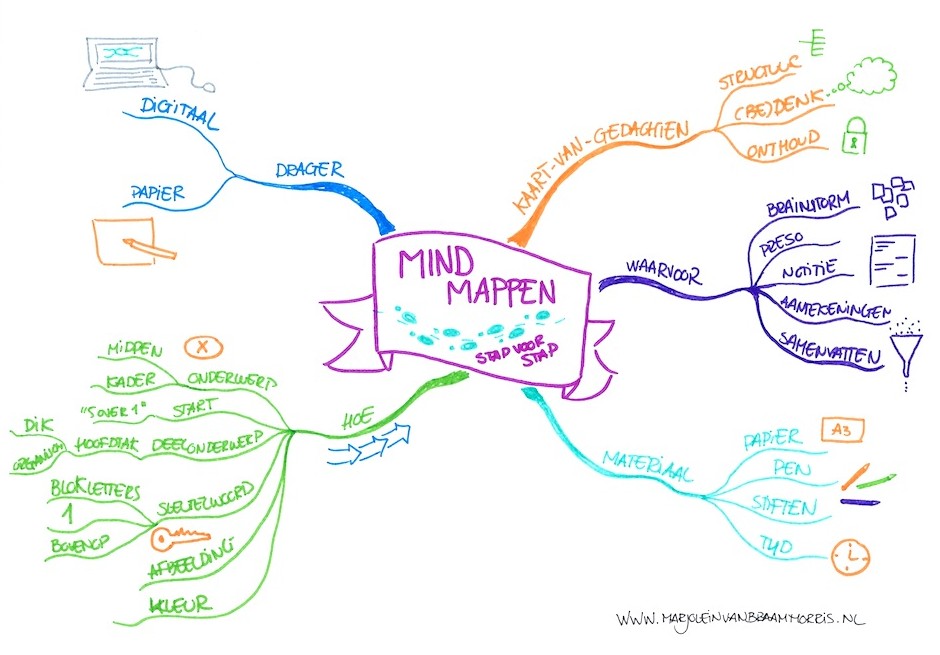 MIND
MAPPEN
STAP VOOR
STAP
KAART-VAN-GEDACHTEN
STRUCTUUR
(BE)DENK
ONTHOUD
WAARVOOR
BRAINSTORM
PRESO
NOTITIE
AANTEKENINGEN
SAMENVATTEN
MATERIAAL
PAPIER
A3
PEN
STIFTEN
TIJD
HOE
ONDERWERP
MIDDEN
X
KADER
START
"5 OVER 1"
DEELONDERWERP
HOOFDTAK
DIK
ORGANISCH
SLEUTELWOORD
BLOKLETTERS
1
BOVENOP
AFBEELDING
KLEUR
DRAGER
DIGITAAL
PAPIER
WWW.MARJOLEINVANBRAAMMORRIS.NL